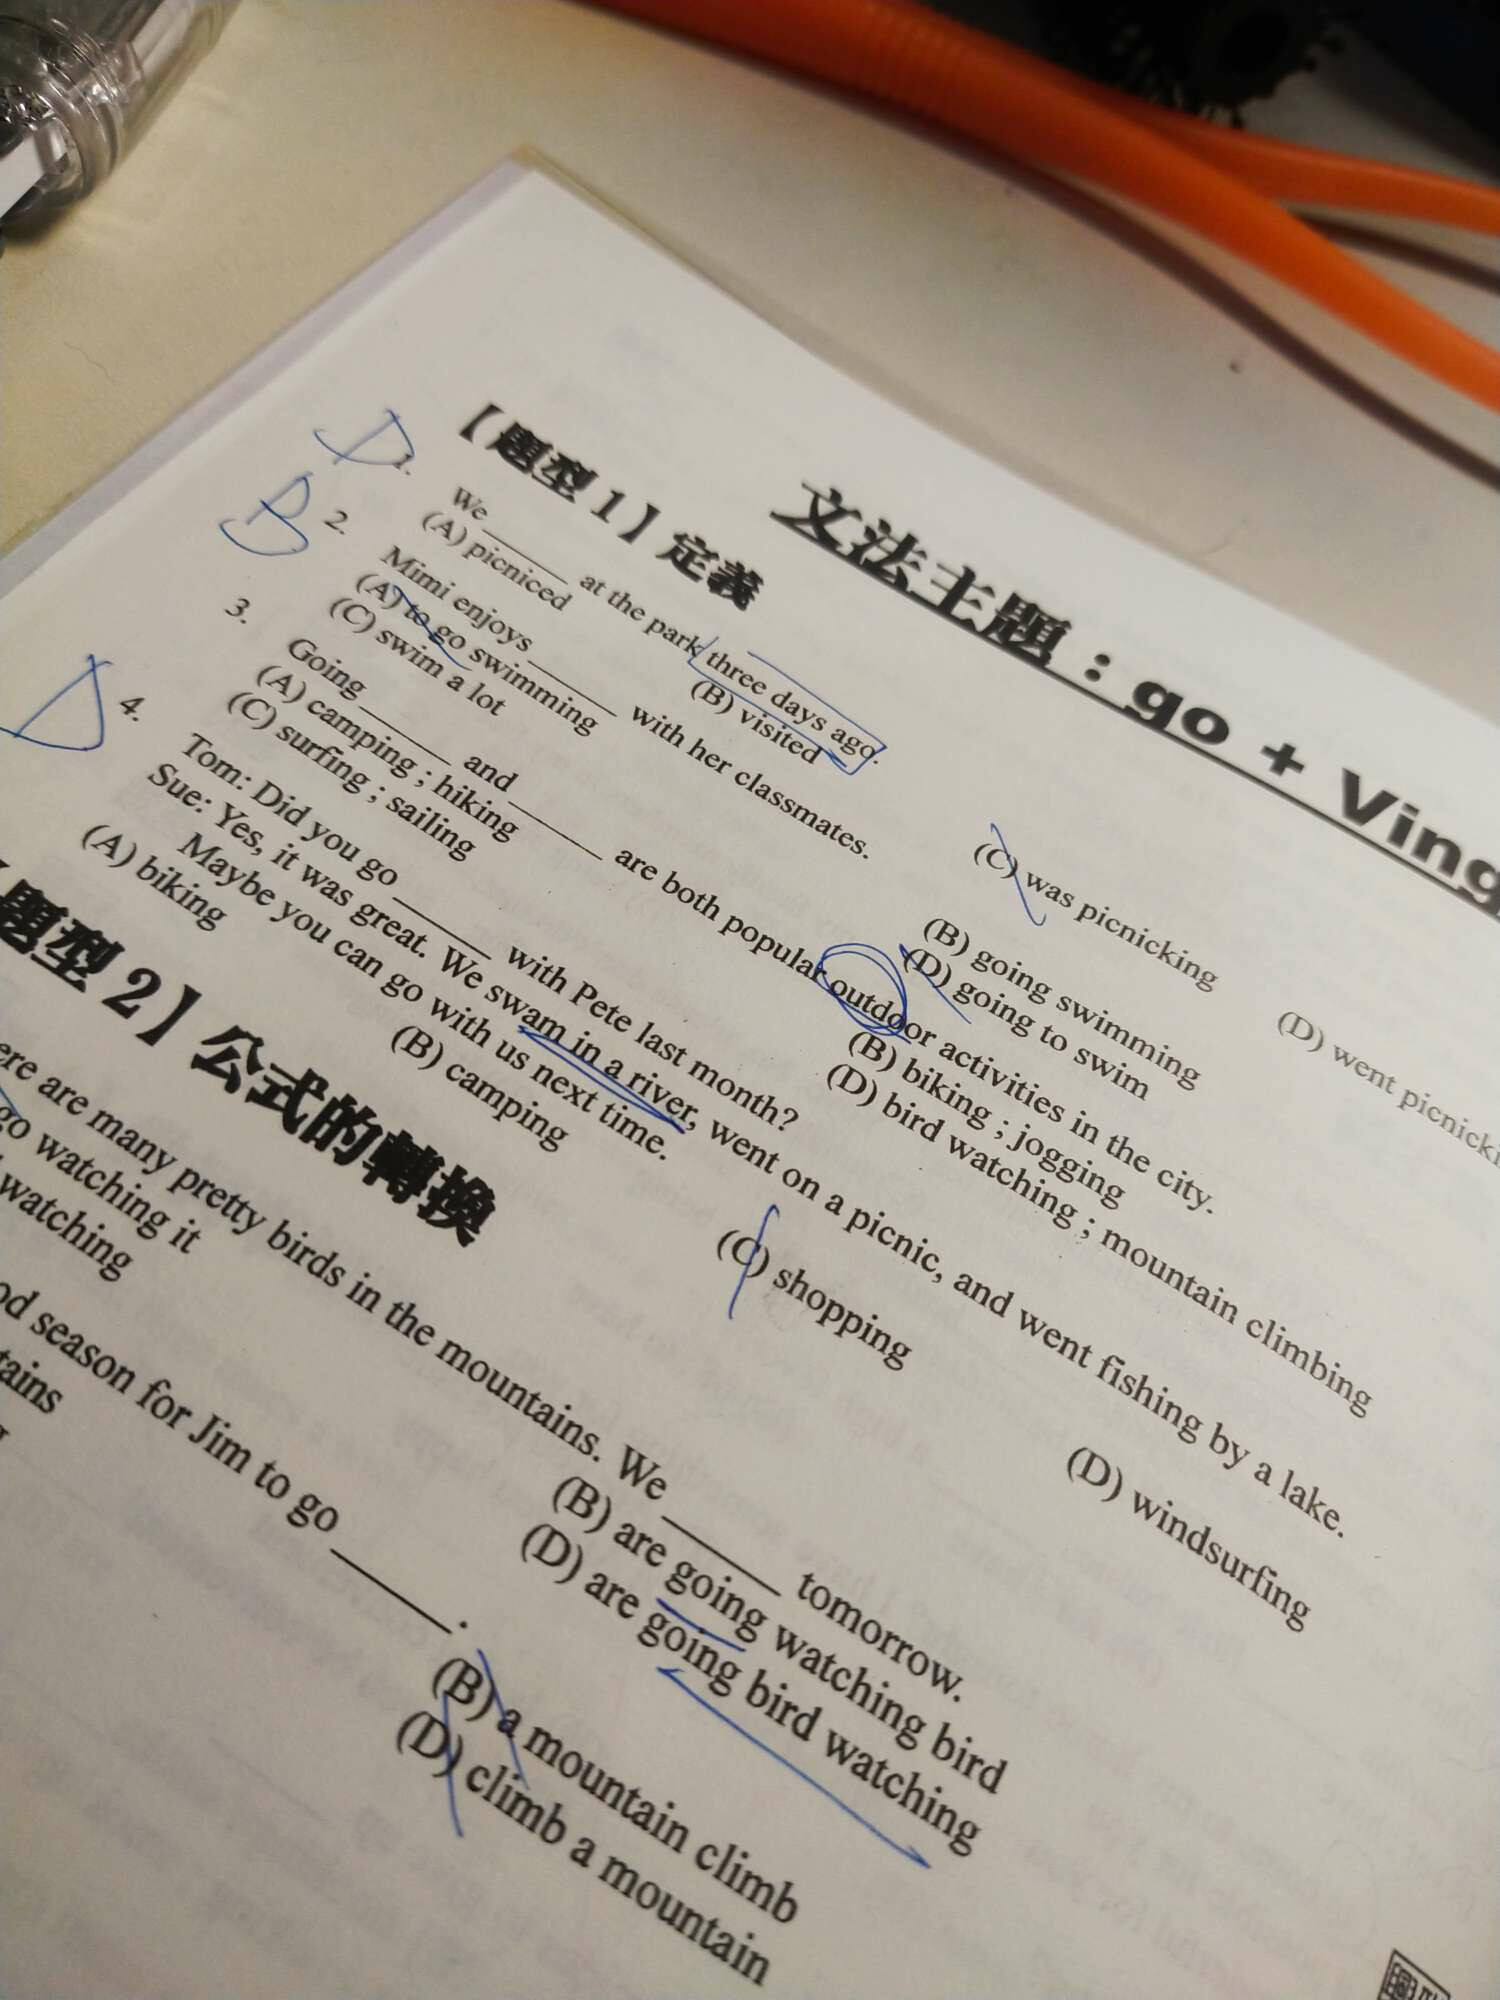 文法主題：go + Ving
【題型 1】定義
D 1. We ______ at the park three days ago.
(A) picniced (B) visited (C) was picnicking (D) went picnicki
B 2. Mimi enjoys ______ with her classmates.
(A) to go swimming (B) going swimming
(C) swim a lot (D) going to swim
3. Going ______ and ______ are both popular outdoor activities in the city.
(A) camping ; hiking (B) biking ; jogging
(C) surfing ; sailing (D) bird watching ; mountain climbing
D 4. Tom: Did you go ______ with Pete last month?
Sue: Yes, it was great. We swam in a river, went on a picnic, and went fishing by a lake.
Maybe you can go with us next time.
(A) biking (B) camping (C) shopping (D) windsurfing
題型 2】公式的轉換
ere are many pretty birds in the mountains. We ______ tomorrow.
go watching it (B) are going watching bird
watching (D) are going bird watching
od season for Jim to go ______.
tains (B) a mountain climb
(D) climb a mountain